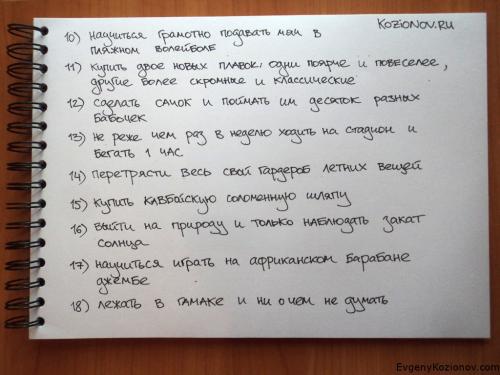 Kozionov.ru
10) научиться грамотно подавать мяч в
пляжном волейболе
11) купить двое новых плавок: одни поярче и повеселее,
другие более скромные и классические
12) сделать сачок и поймать им десяток разных
бабочек
13) не реже чем раз в неделю ходить на стадион и
бегать 1 час
14) перетрясти весь свой гардероб летних вещей
15) купить кавбойскую соломенную шляпу
16) выйти на природу и только наблюдать закат
солнца
17) научиться играть на африканском барабане
джембе
18) лежать в гамаке и ни о чем не думать
EvgenyKozionov.com